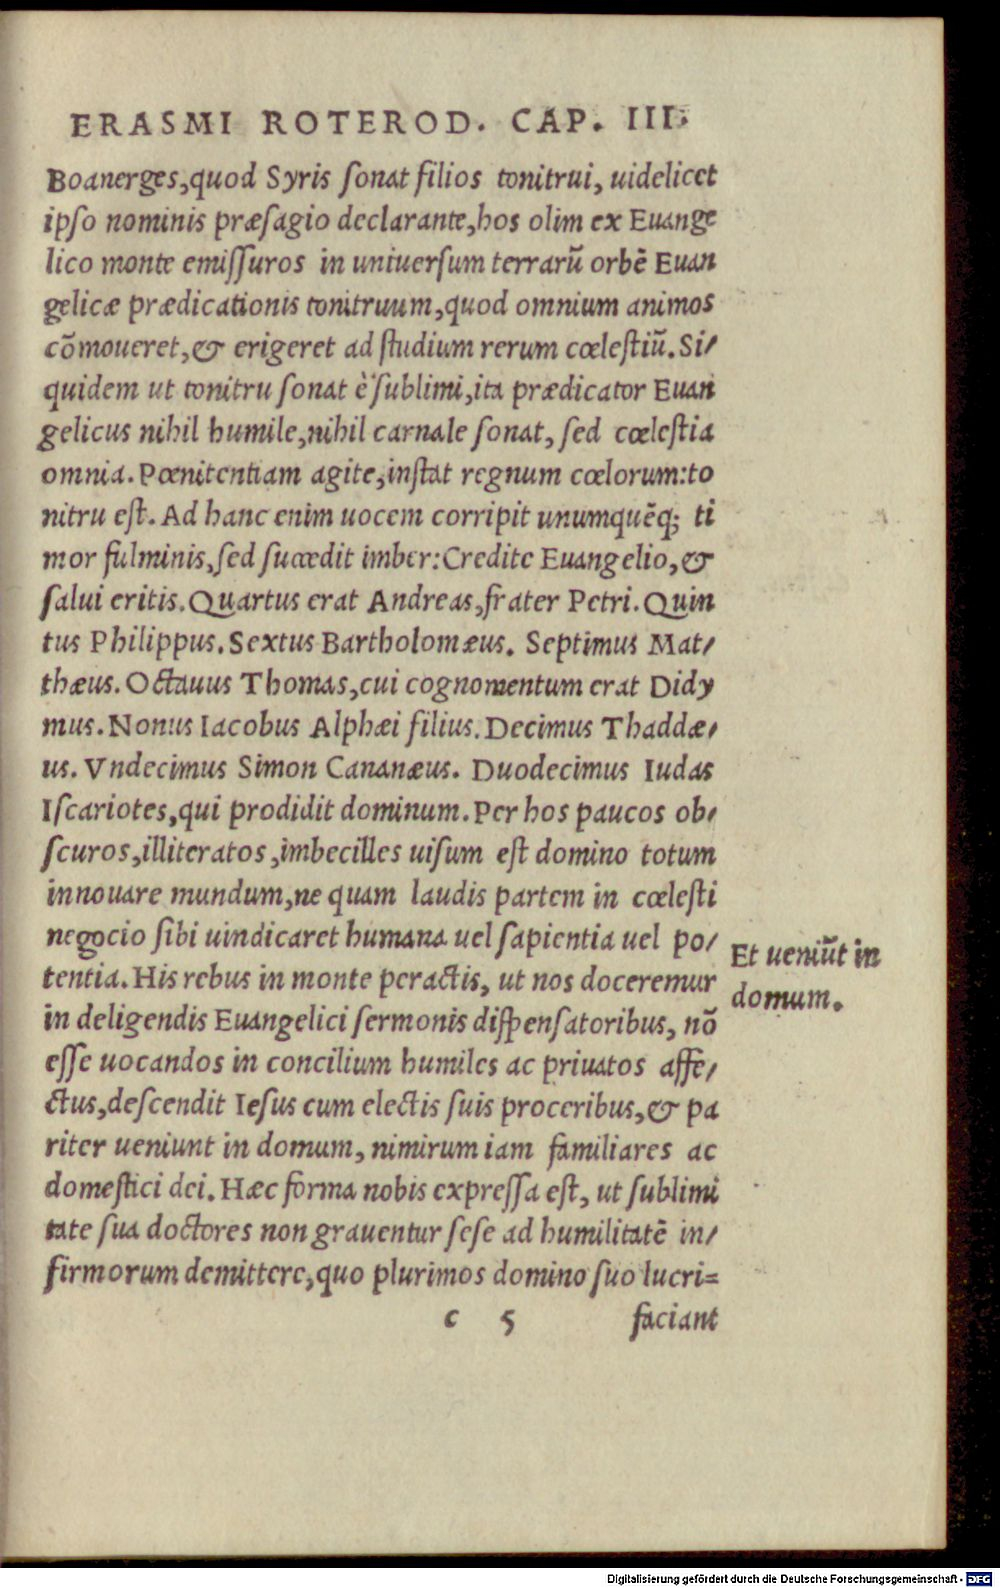 ERASMI ROTEROD. CAP. III.
Boanerges,quod Syris ſonat filios tonitrui, uidelicet
ipſo nominis præſagio declarante,hos olim ex Euange
lico monte emiſſuros in uniuerſum terrarũ orbẽ Euan
gelicæ prædicationis tonitruum,quod omnium animos
cõmoueret,& erigeret ad ſtudium rerum cœleſtiũ. Si⸗
quidem ut tonitru ſonat è ſublimi,ita prædicator Euan
gelicus nihil humile,nihil carnale ſonat, ſed cœleſtia
omnia. Pœnitentiam agite,inſtat regnum cœlorum:to
nitru eſt. Ad hanc enim uocem corripit unumquẽq; ti
mor fulminis,ſed ſuccedit imber: Credite Euangelio,&
ſalui eritis. Quartus erat Andreas,frater Petri. Quin
tus Philippus. Sextus Bartholomæus. Septimus Mat⸗
thæus. Octauus Thomas,cui cognomentum erat Didy
mus. Nonus Iacobus Alphæi filius. Decimus Thaddæ⸗
us. Vndecimus Simon Cananæus. Duodecimus Iudas
Iſcariotes,qui prodidit dominum. Per hos paucos ob⸗
ſcuros,illiteratos,imbecilles uiſum eſt domino totum
innouare mundum,ne quam laudis partem in cœleſti
negocio ſibi uindicaret humana uel ſapientia uel po⸗
tentia. His rebus in monte peractis, ut nos doceremur
in deligendis Euangelici ſermonis diſpenſatoribus, nõ
eſſe uocandos in concilium humiles ac priuatos affe⸗
ctus,deſcendit Ieſus cum electis ſuis proceribus,& pa
riter ueniunt in domum, nimirum iam familiares ac
domeſtici dei. Hæc forma nobis expreſſa eſt, ut ſublimi
tate ſua doctores non grauentur ſeſe ad humilitatẽ in⸗
firmorum demittere,quo plurimos domino ſuo lucri=
c 5 faciant
Et ueniũt in
domum.
Digitalisierung gefördert durch die Deutsche Forschungsgemeinschaft - DFG